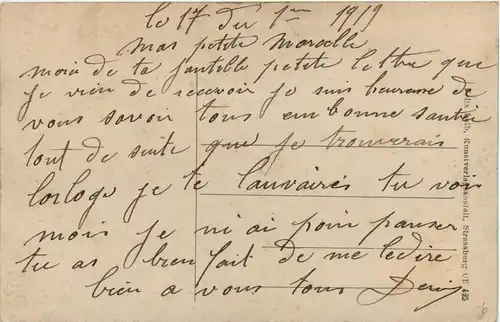 le 17 du 1er 1919
mas petite Marcelle
moin de ta jantille petite lettre que
je vien de recevoir je suis heureuse de
vous savoir tous en bonne santée
tout de suite que je trouverais
lorloge je te lauvairés tu vois
mois je ni ai poin panser
tu as bien fait de me ledire
bien a vous tous Denis
Kunstverlagsanstalt, Strassburg i/E 425